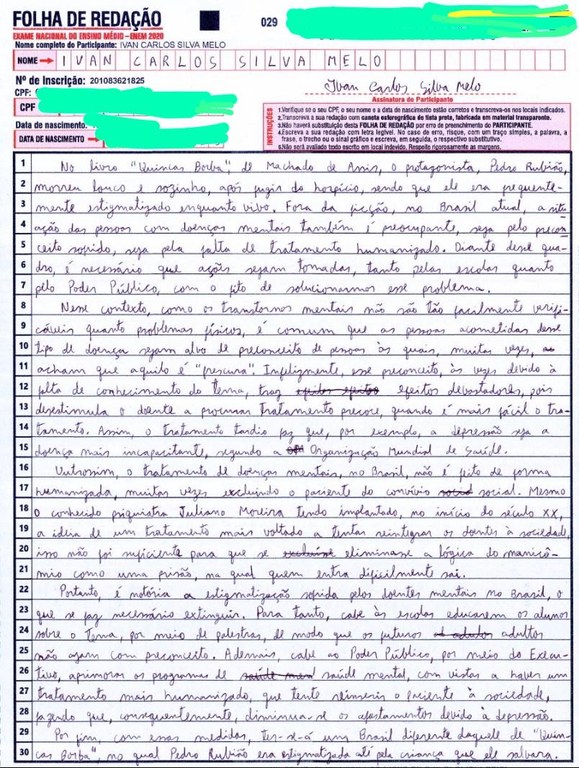 FOLHA DE REDAÇÃO
029
EXAME NACIONAL DO ENSINO MÉDIO – ENEM 2020
Nome completo do Participante: IVAN CARLOS SILVA MELO
NOME → IVAN CARLOS SILVA MELO
Nº de Inscrição: 201083621825
Ivan Carlos Silva Melo
CPF:
Assinatura do Participante
CPF
Data de nascimento:
DATA DE NASCIMENTO →
INSTRUÇÕES
1.Verifique se o seu CPF, o seu nome e a data de nascimento estão corretos e transcreva-os nos locais indicados.
2.Transcreva a sua redação com caneta esferográfica de tinta preta, fabricada em material transparente.
3.Não haverá substituição desta FOLHA DE REDAÇÃO por erro de preenchimento do PARTICIPANTE.
4.Escreva a sua redação com letra legível. No caso de erro, risque, com um traço simples, a palavra, a
frase, o trecho ou o sinal gráfico e escreva, em seguida, o respectivo substitutivo.
5.Não será avaliado texto escrito em local indevido. Respeite rigorosamente as margens.
1 No livro "Quincas Borba", de Machado de Assis, o protagonista, Pedro Rubião,
2 morreu louco e sozinho, após fugir do hospício, sendo que ele era frequente-
3 mente estigmatizado enquanto vivo. Fora da ficção, no Brasil atual, a situ
4 ação das pessoas com doenças mentais também é preocupante, seja pelo precon
5 ceito sofrido, seja pela falta de tratamento humanizado. Diante desse qua-
6 dro, é necessário que ações sejam tomadas, tanto pelas escolas quanto
7 pelo Poder Público, com o fito de solucionarmos esse problema.
8 Nesse contexto, como os transtornos mentais não são tão facilmente verifi-
9 cáveis quanto problemas físicos, é comum que as pessoas acometidas desse
10 tipo de doença sejam alvo de preconceito de pessoas às quais, muitas vezes,
11 acham que aquilo é "frescura". Infelizmente, esse preconceito, às vezes devido à
12 falta de conhecimento do tema, traz efeitos efeitos efeitos devastadores, pois
13 desestimula o doente a procurar tratamento precoce, quando é mais fácil o tra-
14 tamento. Assim, o tratamento tardio faz que, por exemplo, a depressão seja a
15 doença mais incapacitante, segundo a Organização Mundial de Saúde.
16 Outrossim, o tratamento de doenças mentais, no Brasil, não é feito de forma
17 humanizada, muitas vezes excluindo o paciente do convívio social social. Mesmo
18 o conhecido psiquiatra Juliano Moreira tendo implantado, no início do século XX,
19 a ideia de um tratamento mais voltado a tentar reintegrar os doentes à sociedade,
20 isso não foi suficiente para que se eliminasse a lógica do manicô-
21 mio como uma prisão, na qual quem entra dificilmente sai.
22 Portanto, é notória a estigmatização sofrida pelos doentes mentais no Brasil, o
23 que se faz necessário extinguir. Para tanto, cabe às escolas educarem os alunos
24 sobre o tema, por meio de palestras, de modo que os futuros adultos
25 não ajam com preconceito. Ademais, cabe ao Poder Público, por meio do Execu-
26 tivo, aprimorar os programas de saúde men saúde mental, com vistas a haver um
27 tratamento mais humanizado, que tente reinserir o paciente à sociedade,
28 fazendo que, consequentemente, diminua-se os afastamentos devido à depressão.
29 Por fim, com essas medidas, ter-se-á um Brasil diferente daquele de "Quin-
30 cas Borba", no qual Pedro Rubião era estigmatizado até pela criança que ele salvara.